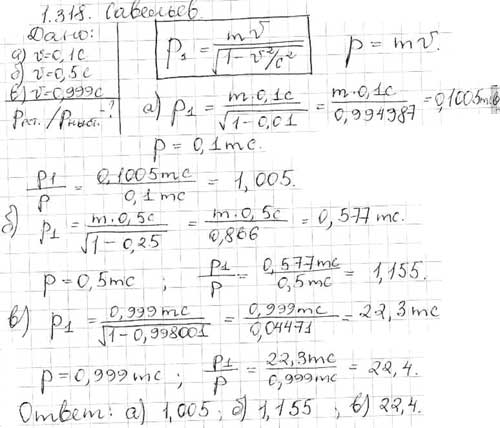 1.318. Савельев.
Дано:
а) v=0,1c
б) v=0,5c
в) v=0,999c
Pрел./Pньют.-?
p₁ = mv/√(1-v²/c²)
p = mv.
а) p₁ = m·0,1c/√(1-0,01) = m·0,1c/0,994987 = 0,1005mc
p = 0,1mc.
p1/p = 0,1005mc/0,1mc = 1,005.
б) p₁ = m·0,5c/√(1-0,25) = m·0,5c/0,866 = 0,577mc.
p = 0,5mc ; p1/p = 0,577mc/0,5mc = 1,155.
в) p₁ = 0,999mc/√(1-0,998001) = 0,999mc/0,04471 = 22,3mc
p = 0,999mc ; p1/p = 22,3mc/0,999mc = 22,4.
Ответ: а) 1,005 ; б) 1,155 ; в) 22,4.